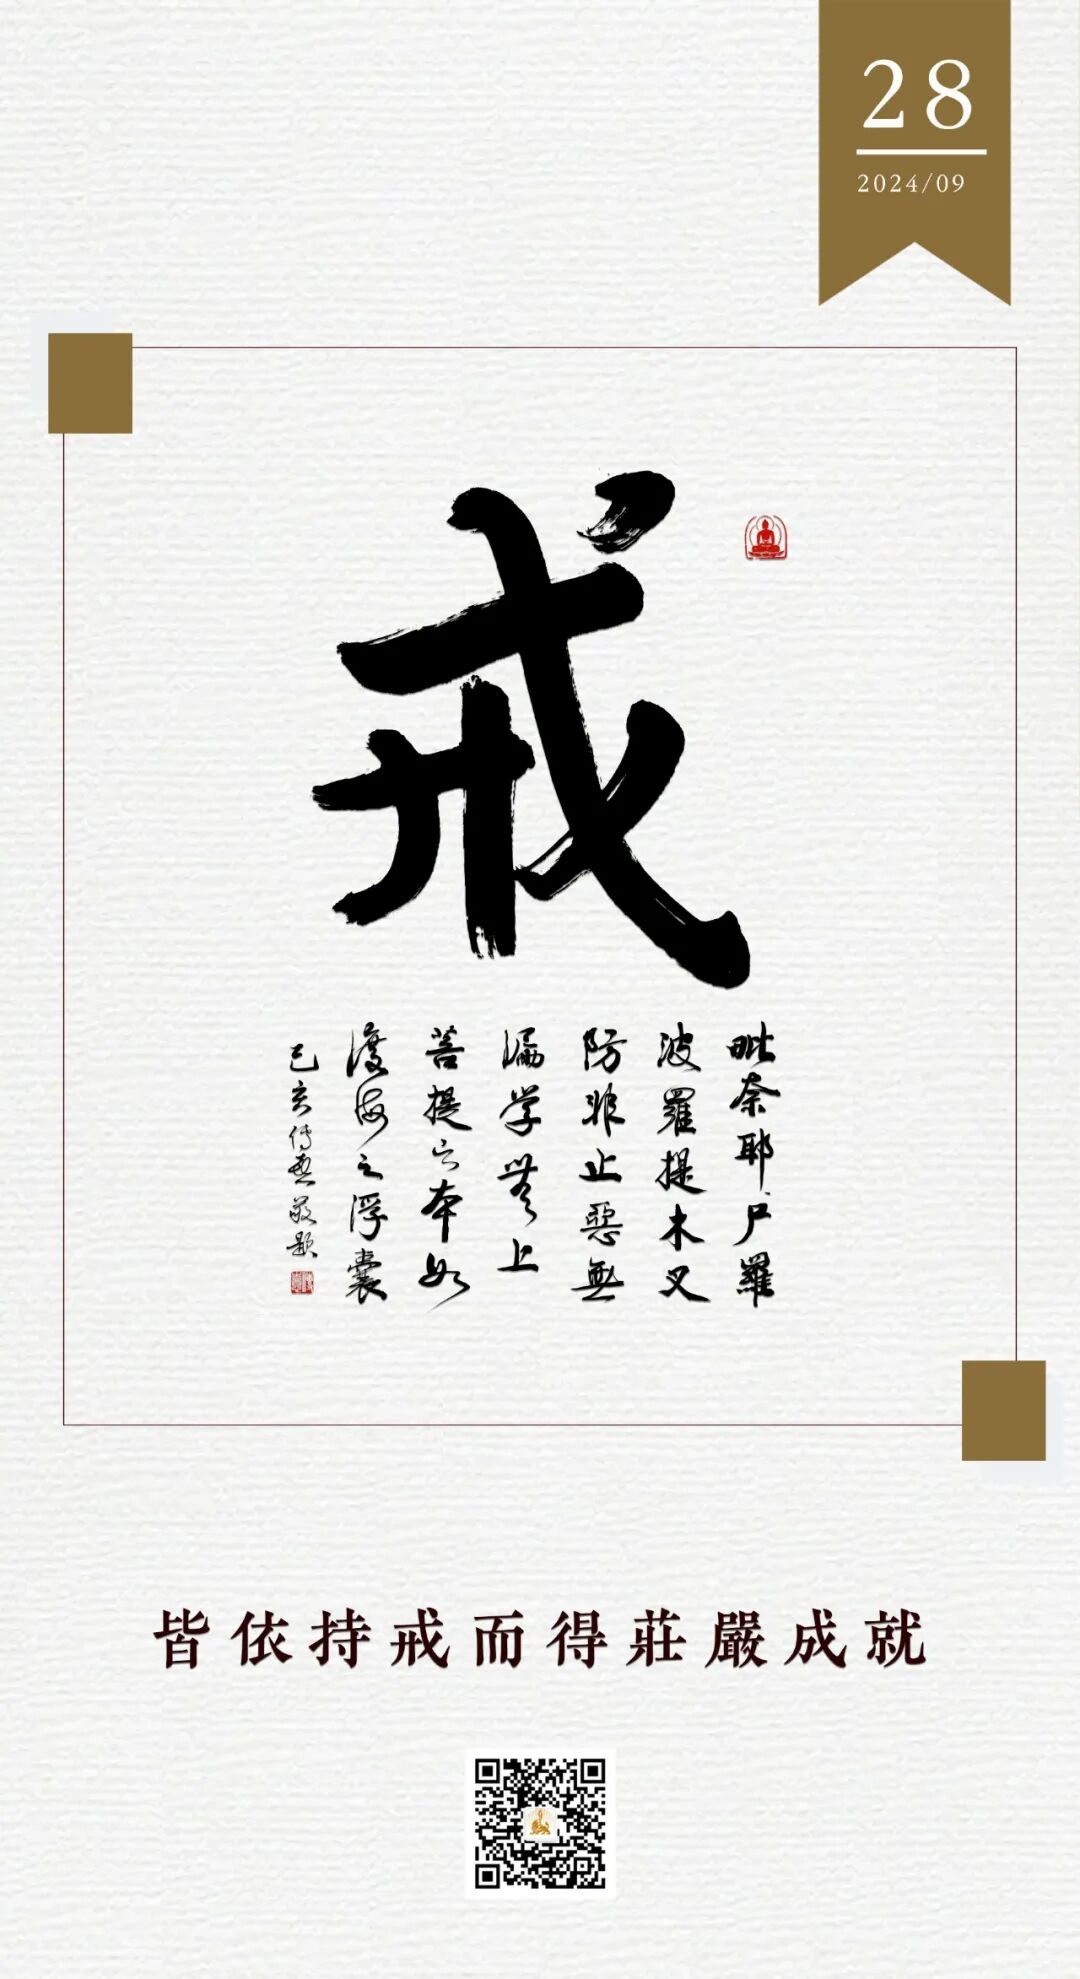 28
2024/09
戒
毗奈耶尸羅
波羅提木叉
防非止惡無
漏学無上
菩提之本如
渡海之浮囊
己亥传無敬题
皆依持戒而得莊嚴成就